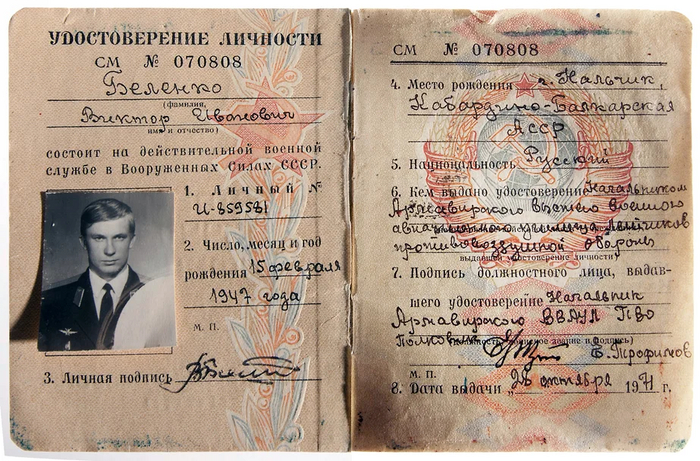 УДОСТОВЕРЕНИЕ ЛИЧНОСТИ
СМ № 070808
Беленко
(фамилия,
Виктор Иванович
имя и отчество)
состоит на действительной военной
службе в Вооруженных Силах СССР.
1. Личный №
И-859581
2. Число, месяц и год
рождения 15 февраля
1947 года
М. П.
3. Личная подпись
СМ № 070808
4. Место рождения г. Нальчик,
Кабардино-Балкарская
АССР
5. Национальность Русский
6. Кем выдано удостоверение Начальником
Армавирского высшего военного
авиационного училища лётчиков
противовоздушной обороны
выдавшей удостоверение личности)
7. Подпись должностного лица, выдав-
шего удостоверение Начальник
Армавирского ВВАУЛ ПВО
Полковник Е. Трофимов
М. П.
8. Дата выдачи „28 октября 1971 г.